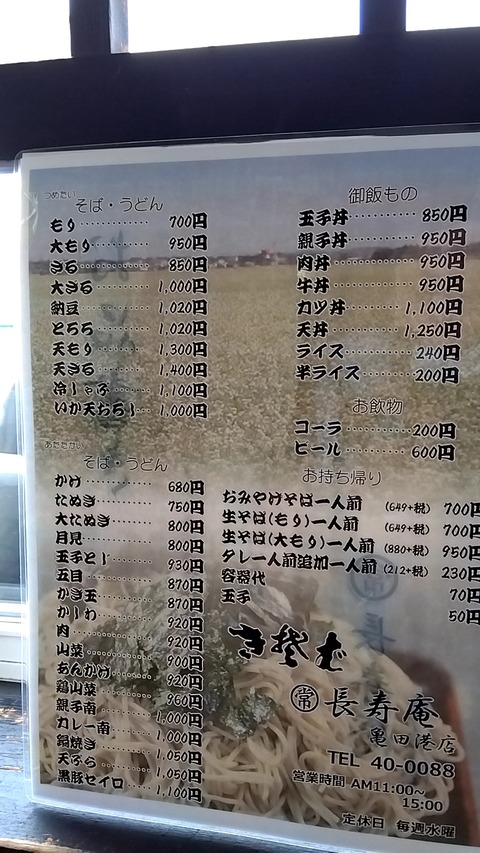 つめたい
そば・うどん
もり 700円
大もり 950円
ざる 850円
大ざる 1,000円
納豆 1,020円
とろろ 1,020円
天もり 1,300円
天ざる 1,400円
冷しゃぶ 1,100円
いか天おろし 1,000円
あたたかい
そば・うどん
かけ 680円
たぬき 750円
大たぬき 800円
月見 800円
玉子とじ 930円
五目 870円
かき玉 870円
かしわ 920円
肉 920円
山菜 900円
あんかけ 920円
鶏山菜 960円
親子南 1,000円
カレー南 1,000円
鍋焼き 1,050円
天ぷら 1,050円
黒豚セイロ 1,100円
御飯もの
玉子丼 850円
親子丼 950円
肉丼 950円
牛丼 950円
カツ丼 1,100円
天丼 1,250円
ライス 240円
半ライス 200円
お飲物
コーラ 200円
ビール 600円
お持ち帰り
おみやげそば一人前 (649+税) 700円
生そば(もり)一人前 (649+税) 700円
生そば(大もり)一人前 (880+税) 950円
タレ一人前追加一人前 (212+税) 230円
容器代 70円
玉子 50円
常 長寿庵
亀田港店
TEL 40-0088
営業時間 AM11:00～
15:00
定休日 毎週水曜